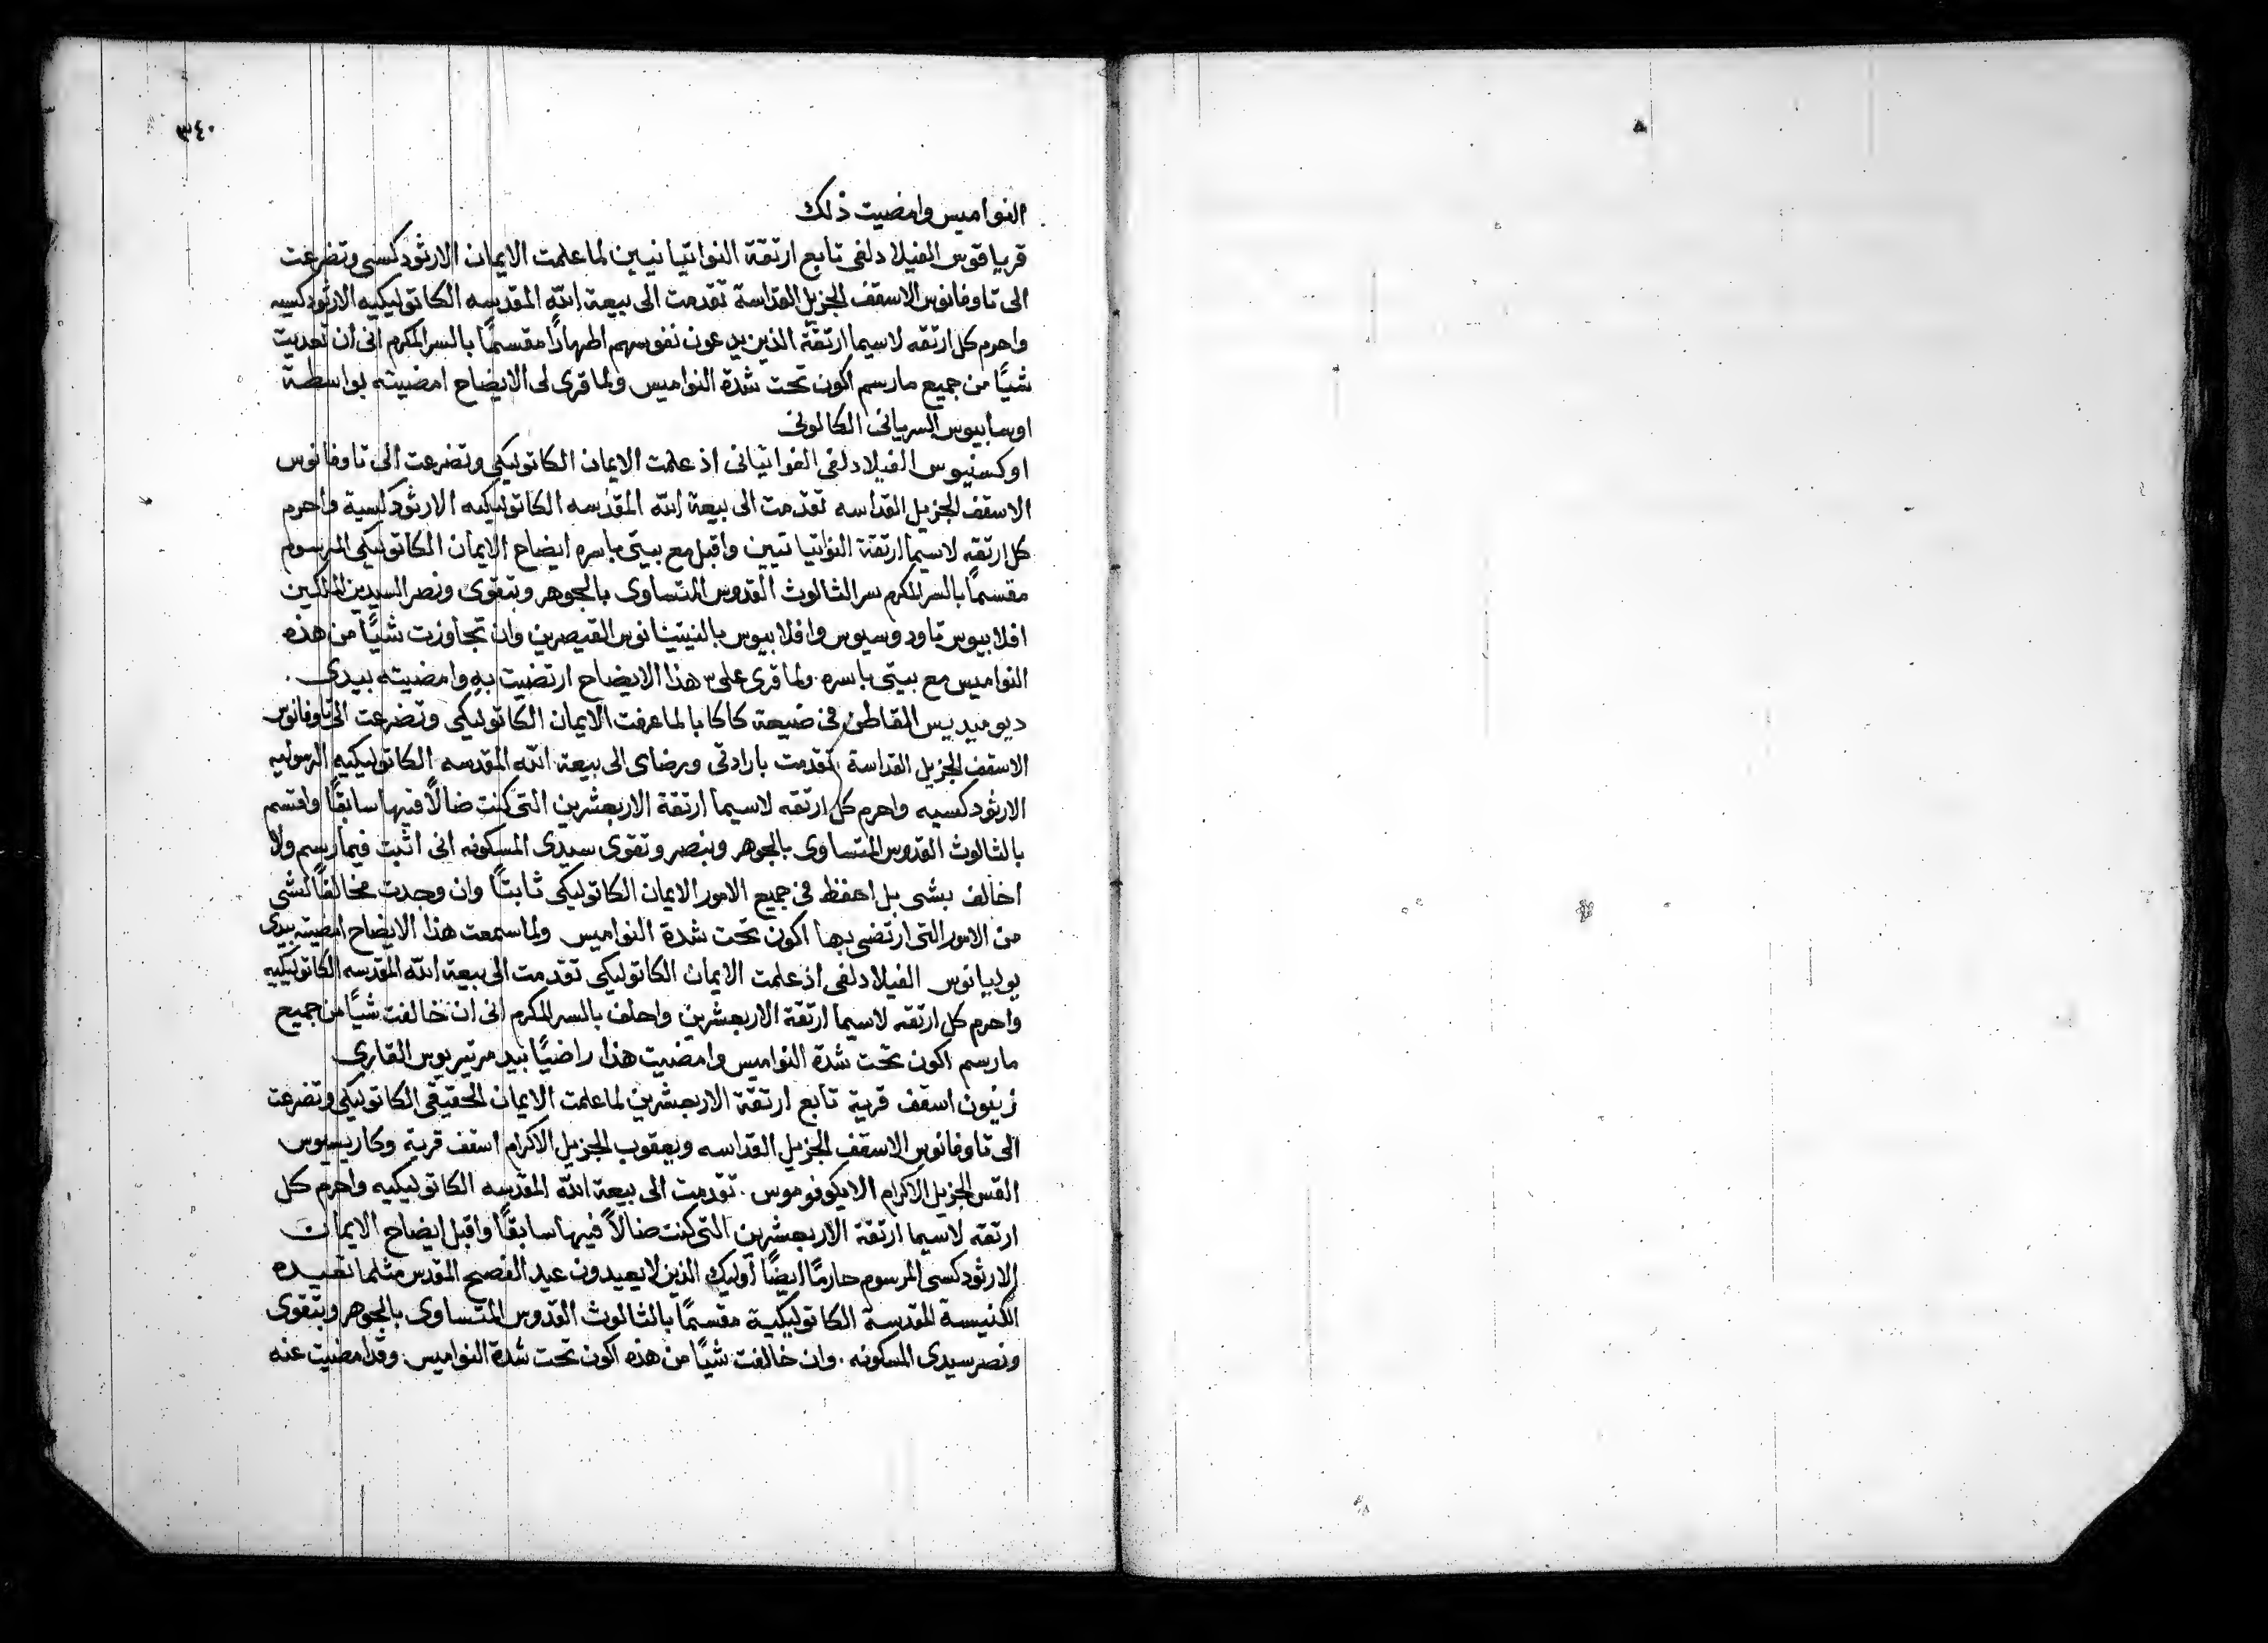 ٣٤٠
النواميس وامضيت ذلك
قرياقوس الفيلادلفى تابع ارتقة النواتيانيين لما علمت الايمان الارثودكسى وتضرعت
الى تاوفانوس الاسقف الجزيل القداسة تقدمت الى بيعة الله المقدسه الكاتوليكيه الارثودكسيه
واحرم كل ارتقه لاسيما ارتقة الذين يدعون نفوسهم اطهارًا مقسمًا بالسر المكرم انى ان تعديت
شيًا من جميع ما رسم اكون تحت شدة النواميس ولما قرى لى الايضاح امضيته بواسطة
اوسابيوس السريانى الكالونى
اوكسنيوس الفيلادلفى النواتيانى اذ علمت الايمان الكاتوليكى وتضرعت الى تاوفانوس
الاسقف الجزيل القداسه تقدمت الى بيعة الله المقدسه الكاتوليكيه الارثودكسية واحرم
كل ارتقه لاسيما ارتقة النواتياتيين واقبل مع بيتى باسره ايضاح الايمان الكاتوليكى المرسوم
مقسمًا بالسر المكرم سر الثالوث القدوس المتساوى بالجوهر وبتقوى ونصر السيدين الملكين
افلابيوس تاودوسيوس وافلابيوس بالنيتينانوس القيصرين وان تجاوزت شيًا من هذه
النواميس مع بيتى باسره. ولما قرى على هذا الايضاح ارتضيت به وامضيته بيدى.
ديوميديس القاطن فى ضيعة كاكابا لما عرفت الايمان الكاتوليكى وتضرعت الى تاوفانوس
الاسقف الجزيل القداسة تقدمت بارادتى ورضاى الى بيعة الله المقدسه الكاتوليكيه الرسوليه
الارثودكسيه واحرم كل ارتقه لاسيما ارتقة الاربعشرين التى كنت ضالًا فيها سابقًا واقتسم
بالثالوث القدوس المتساوى بالجوهر وبنصر وتقوى سيدى المسكونه انى اثبت فيما رسم ولا
اخالف بشى بل احفظ فى جميع الامور الايمان الكاتوليكى ثابتًا وان وجدت مخالفًا لشى
من الامور التى ارتضى بها اكون تحت شدة النواميس ولما سمعت هذا الايضاح امضيته بيدى
يوليانوس الفيلادلفى اذ علمت الايمان الكاتوليكى تقدمت الى بيعة الله المقدسه الكاتوليكيه
واحرم كل ارتقه لاسيما ارتقة الاربعشرين واحلف بالسر المكرم انى ان خالفت شيًا من جميع
ما رسم اكون تحت شدة النواميس وامضيت هذا راضيًا بيد مرتيريوس القارى
زينون اسقف قرية تابع ارتقة الاربعشرين لما علمت الايمان الحقيقى الكاتوليكى وتضرعت
الى تاوفانوس الاسقف الجزيل القداسه ويعقوب الجزيل الاكرام اسقف قرية وكاريسيوس
القس الجزيل الاكرام الايكونوموس. تقدمت الى بيعة الله المقدسه الكاتوليكيه واحرم كل
ارتقه لاسيما ارتقة الاربعشرين التى كنت ضالًا فيها سابقًا واقبل ايضاح الايمان
الارثودكسى المرسوم حارمًا ايضًا اوليك الذين لا يعيدون عيد الفصح المقدس مثلما تعيده
الكنيسة المقدسة الكاتوليكية مقسمًا بالثالوث القدوس المتساوى بالجوهر وبتقوى
ونصر سيدى المسكونه. وان خالفت شيًا من هذه اكون تحت شدة النواميس. وقد امضيت عنه